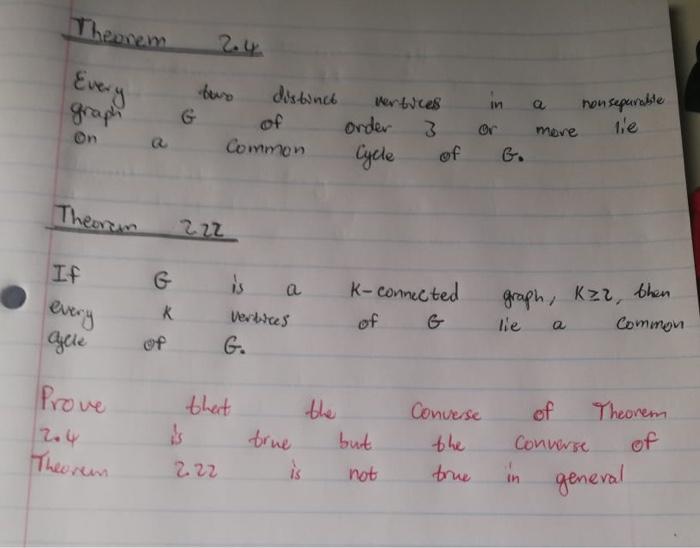 Theorem 2.4
Every two distinct vertices in a nonseparable
graph G of order 3 or more lie
on a common cycle of G.
Theorem 2.22
If G is a K-connected graph, K≥2, then
every K vertices of G lie a common
cycle of G.
Prove that the converse of Theorem
2.4 is true but the converse of
Theorem 2.22 is not true in general